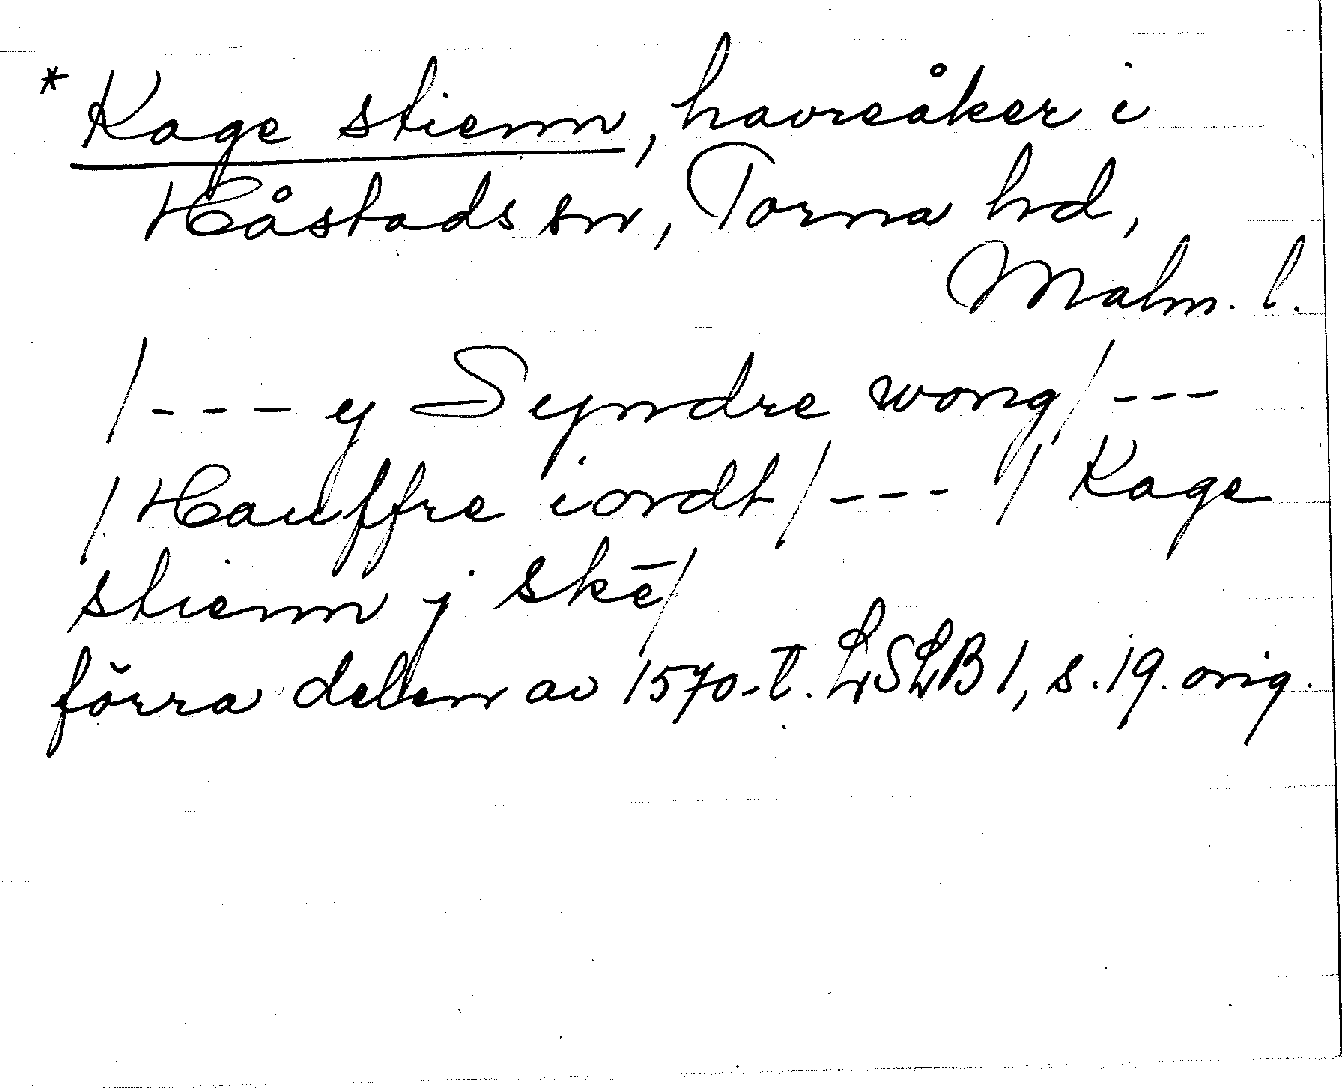 * Kage stienn, havreåker i
Håstads sn, Torna hd,
Malm. l.
/--- y Syndre wong/ ---
/Hauffre iordt/ --- / Kage
stienn j skē/
förra delen av 1570-t. LSLB 1, s. 19. orig.